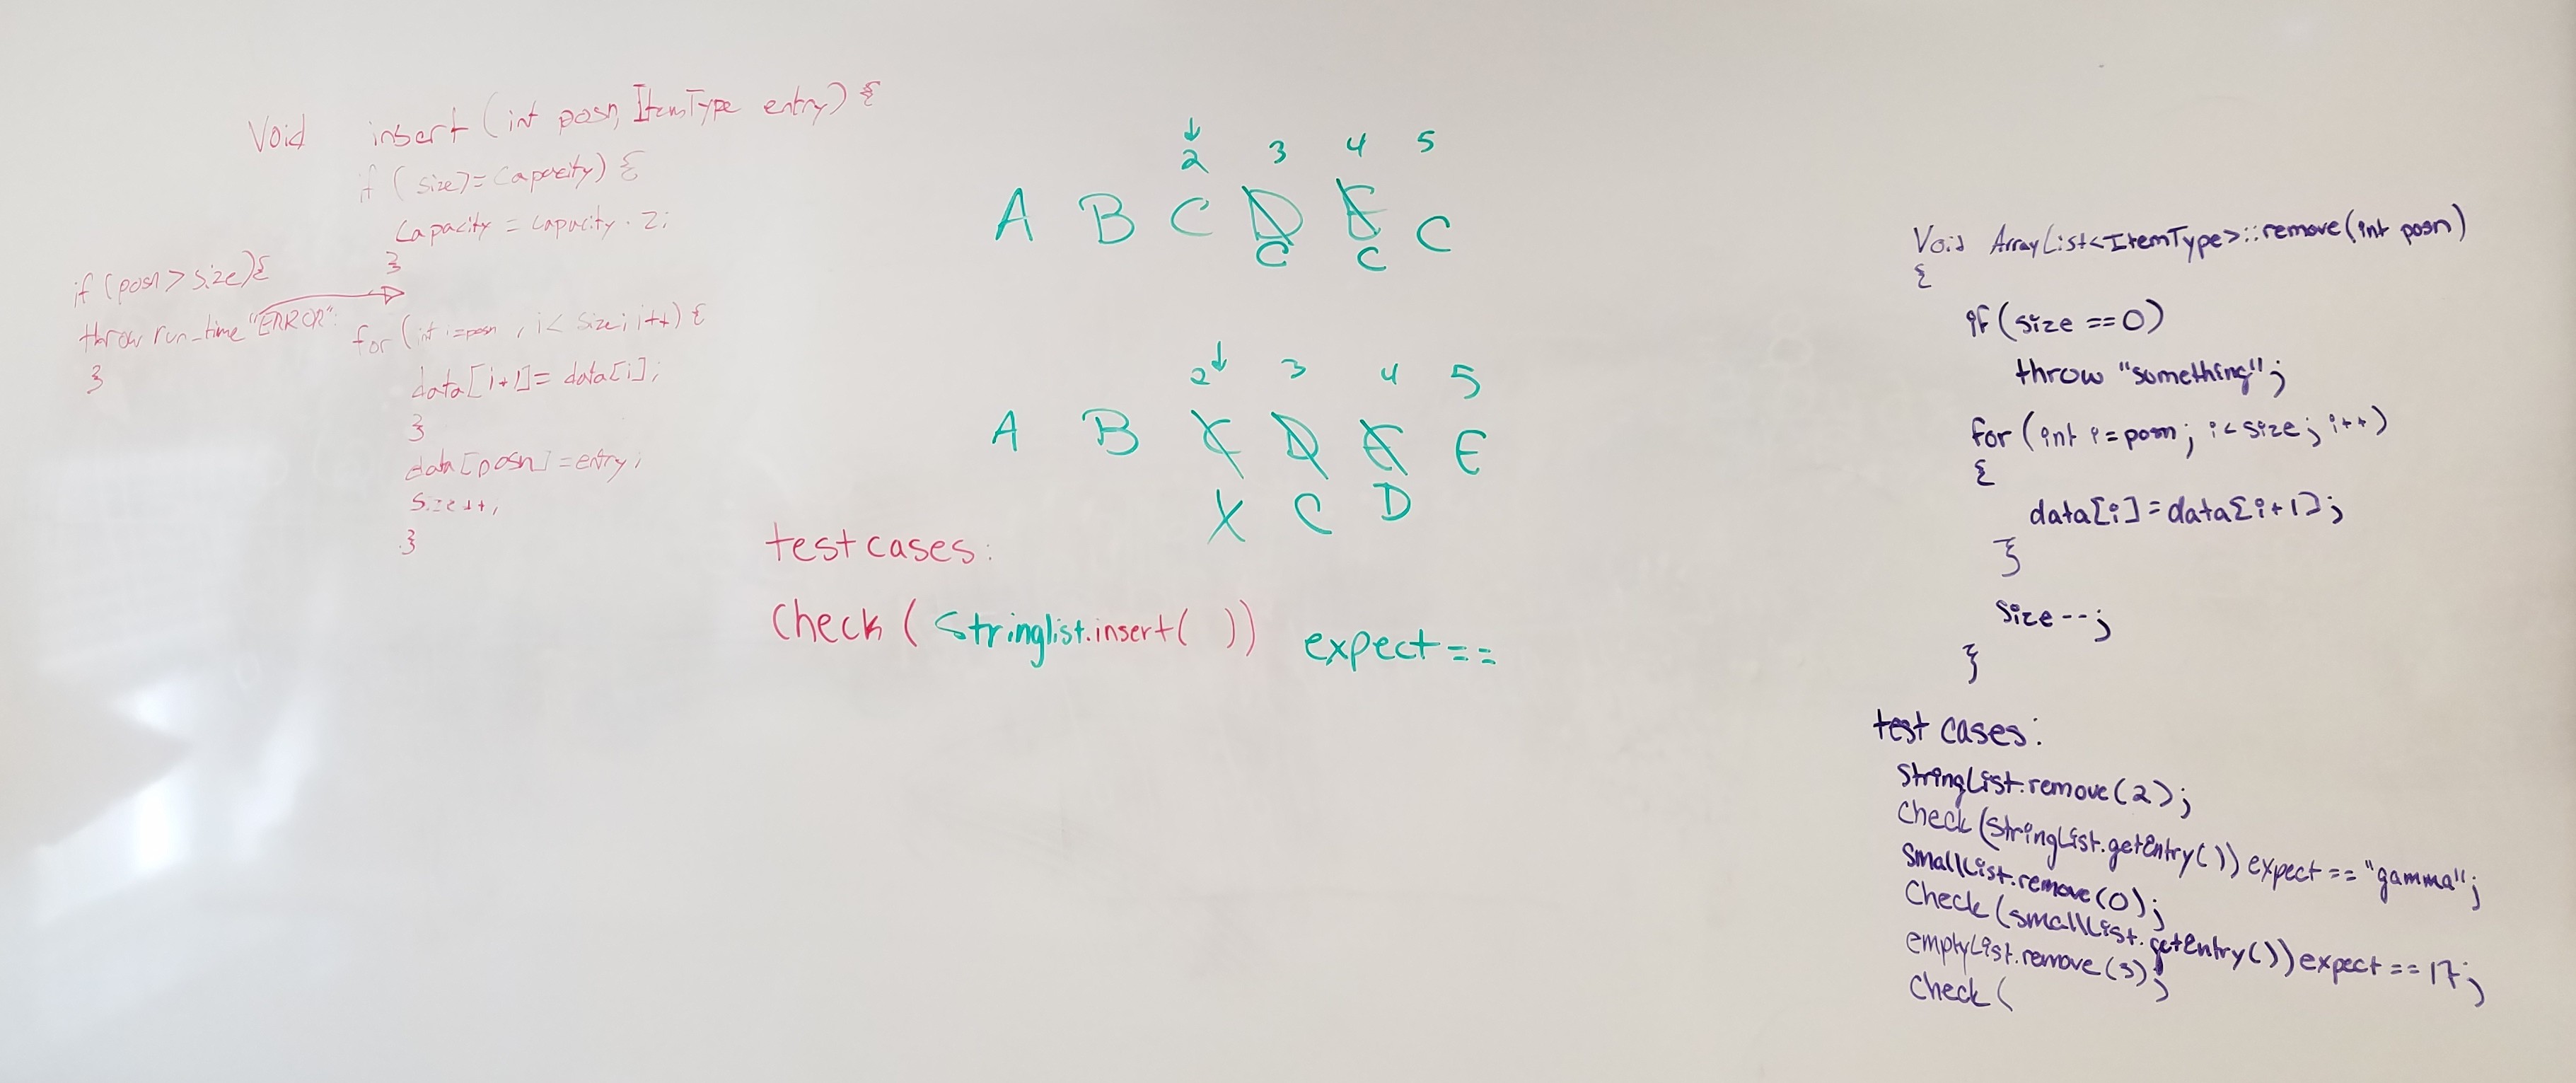 Void insert (int posn, ItemType entry) {
if (size>=capacity) {
capacity = capacity . 2;
}
if (posn > size){
throw run_time "ERROR":
}
for (int i=posn , i< size; i++) {
data[i+1]= data[i];
}
data[posn] = entry;
size++,
}
2 3 4 5
A B C D E C
C C
2 3 4 5
A B C D E E
X C D
test cases:
Check ( Stringlist.insert( )) expect ==
Void ArrayList<ItemType>::remove(int posn)
{
if (size ==0)
throw "something";
for (int i=posn; i<size; i++)
{
data[i]=data[i+1];
}
size--;
}
test cases:
StringList.remove(2);
Check (StringList.getEntry()) expect == "gamma";
SmallList.remove(0);
Check (smallList.getEntry()) expect == 17;
emptyList.remove(3);
Check (